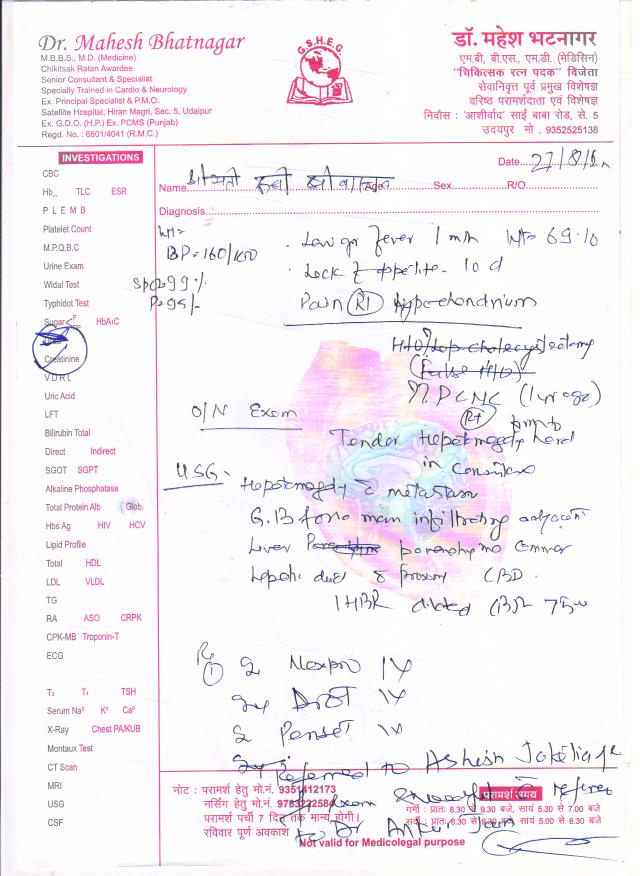 Dr. Mahesh Bhatnagar
M.B.B.S., M.D. (Medicine)
Chikitsak Ratan Awardee
Senior Consultant & Specialist
Specially Trained in Cardio & Neurology
Ex. Principal Specialist & P.M.O.
Satellite Hospital, Hiran Magri, Sec. 5, Udaipur
Ex. G.D.O. (H.P.) Ex. PCMS (Punjab)
Regd. No. : 6501/4041 (R.M.C.)
G.S.H.E.G.
डॉ. महेश भटनागर
एम.बी. बी.एस., एम.डी. (मेडिसिन)
"चिकित्सक रत्न पदक" विजेता
सेवानिवृत्त पूर्व प्रमुख विशेषज्ञ
वरिष्ठ परामर्शदाता एवं विशेषज्ञ
निवास : 'आशीर्वाद' साईं बाबा रोड, से. 5
उदयपुर मो . 9352525138
INVESTIGATIONS
CBC
Hb_ TLC ESR
P L E M B
Platelet Count
M.P.Q.B.C
Urine Exam
Widal Test
Typhidot Test
Sugar F PP HbA1C
Creatinine
V D R L
Uric Acid
LFT
Bilirubin Total
Direct Indirect
SGOT SGPT
Alkaline Phosphatase
Total Protein Alb Glob.
Hbs Ag HIV HCV
Lipid Profile
Total HDL
LDL VLDL
TG
RA ASO CRPK
CPK-MB Troponin-T
ECG
T₃ T₄ TSH
Serum Na⁰ K⁰ Ca⁰
X-Ray Chest PA/KUB
Montaux Test
CT Scan
MRI
USG
CSF
Date 27/8/
Name Age Sex R/O
Diagnosis
BP = 160/100
SpO2 99 %
P = 95/-
Low gr fever 1 mth Wt = 69
Lack of appetite - 10 d
Pain Rt hypochondrium
H/O Lap cholecystectomy
(False H/O)
PCNL (1 yr ago)
Rt
O/N Exam
Tender Hepatomegaly hard
in Consistency
USG - Hepatomegaly c metastasis
G.B fossa mass infiltrating adjacent
Liver parenchyma common
hepatic duct & proximal CBD
IHBR dilated CBD
Rx
IV
IV
IV
Referred to Ashish
to Dr Ankur Jain
नोट : परामर्श हेतु मो.नं. 9351412173
नर्सिंग हेतु मो.नं. 9783222584
परामर्श पर्ची 7 दिन तक मान्य होगी।
रविवार पूर्ण अवकाश
परामर्श समय
गर्मी : प्रातः 8.30 से 9.30 बजे, सायं 5.30 से 7.00 बजे
सर्दी : प्रातः 8.30 से 9.30 बजे, सायं 5.00 से 6.30 बजे
Not valid for Medicolegal purpose